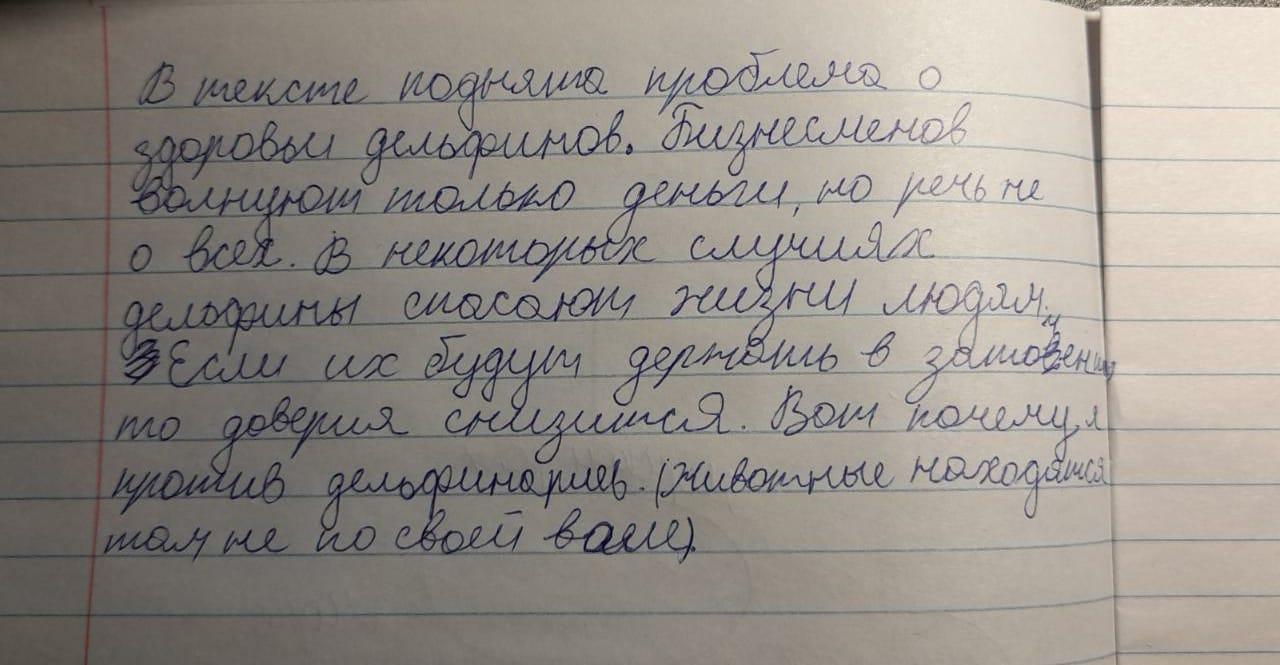 В тексте поднята проблема о
здоровьи дельфинов. Бизнесменов
волнуют только деньги, но речь не
о всех. В некоторых случиях
дельфины спасают жизни людям.
Если их будут держать в
то доверия снизится. Вот почему я
против дельфинариев. (Животные находятся
там не по своей воле).